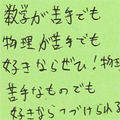 数学が苦手でも
物理が苦手でも
好きならぜひ!物
苦手なものでも
好きならつづけられる